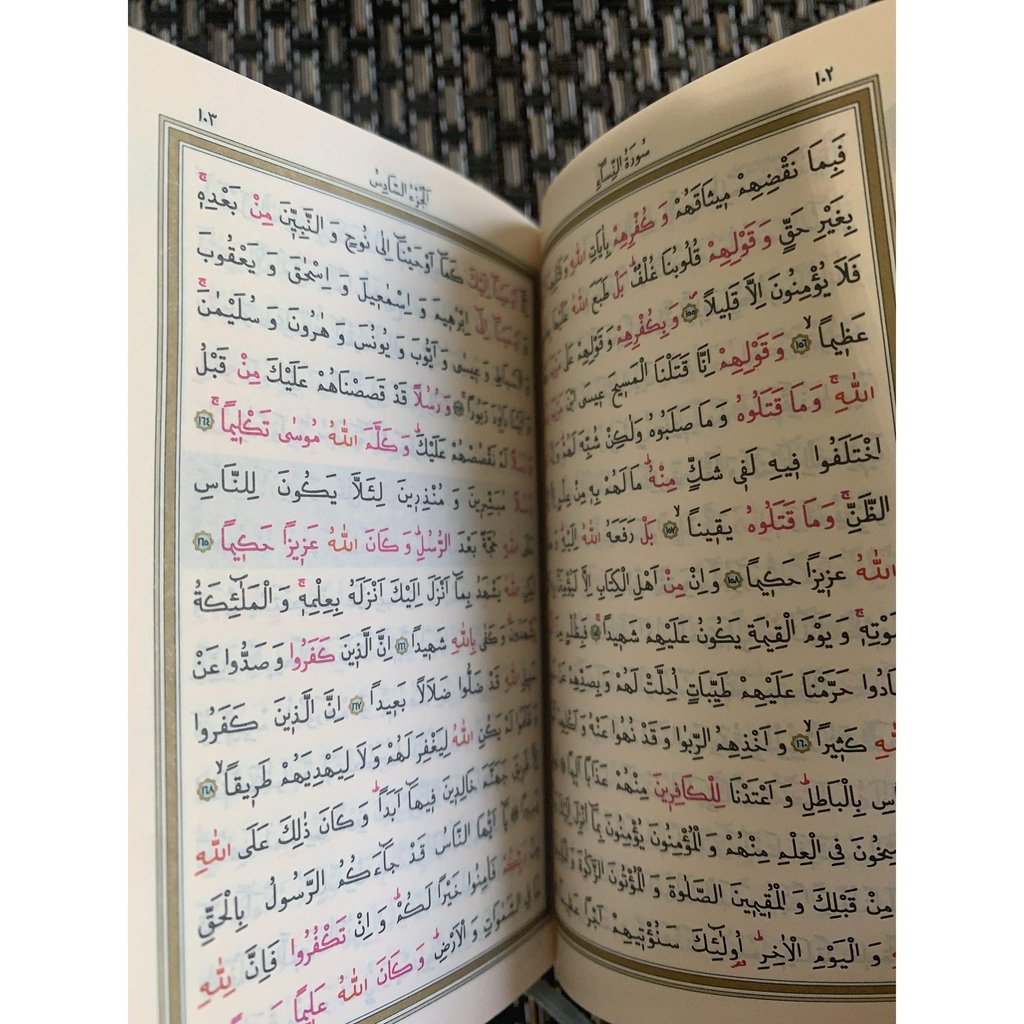 ١٠٢
سُورَةُ النِّسَاءِ
فَبِمَا نَقْضِهِمْ مِيثَاقَهُمْ وَ كُفْرِهِمْ بِاٰيَاتِ اللّٰهِ وَ
بِغَيْرِ حَقٍّ وَ قَوْلِهِمْ قُلُوبُنَا غُلْفٌ بَلْ طَبَعَ اللّٰهُ عَلَيْهَا
فَلَا يُؤْمِنُونَ اِلَّا قَلِيلًا ﴿١٥٥﴾ وَ بِكُفْرِهِمْ وَ قَوْلِهِمْ عَلٰى
عَظِيمًا ﴿١٥٦﴾ وَ قَوْلِهِمْ اِنَّا قَتَلْنَا الْمَسِيحَ عِيسَى ابْنَ
اللّٰهِ وَمَا قَتَلُوهُ وَمَا صَلَبُوهُ وَلٰكِنْ شُبِّهَ لَهُمْ
اخْتَلَفُوا فِيهِ لَفِي شَكٍّ مِنْهُ مَا لَهُمْ بِهِ مِنْ عِلْمٍ
الظَّنِّ وَمَا قَتَلُوهُ يَقِينًا ﴿١٥٧﴾ بَلْ رَفَعَهُ اللّٰهُ اِلَيْهِ
اللّٰهُ عَزِيزًا حَكِيمًا ﴿١٥٨﴾ وَاِنْ مِنْ اَهْلِ الْكِتَابِ اِلَّا
مَوْتِهِ وَ يَوْمَ الْقِيٰمَةِ يَكُونُ عَلَيْهِمْ شَهِيدًا ﴿١٥٩﴾
هَادُوا حَرَّمْنَا عَلَيْهِمْ طَيِّبَاتٍ اُحِلَّتْ لَهُمْ وَ بِصَدِّهِمْ عَنْ
اللّٰهِ كَثِيرًا ﴿١٦٠﴾ وَ اَخْذِهِمُ الرِّبٰوا وَ قَدْ نُهُوا عَنْهُ وَ اَكْلِهِمْ
النَّاسِ بِالْبَاطِلِ وَ اَعْتَدْنَا لِلْكَافِرِينَ مِنْهُمْ عَذَابًا اَلِيمًا
الرَّاسِخُونَ فِي الْعِلْمِ مِنْهُمْ وَ الْمُؤْمِنُونَ يُؤْمِنُونَ بِمَا اُنْزِلَ
مِنْ قَبْلِكَ وَ الْمُقِيمِينَ الصَّلٰوةَ وَ الْمُؤْتُونَ الزَّكٰوةَ
وَ الْيَوْمِ الْاٰخِرِ اُولٰٓئِكَ سَنُؤْتِيهِمْ اَجْرًا
١٠٣
اَلْجُزْءُ السَّادِسُ
اَوْحَيْنَا اِلَيْكَ كَمَا اَوْحَيْنَا اِلٰى نُوحٍ وَ النَّبِيِّنَ مِنْ بَعْدِهِ
وَ اَوْحَيْنَا اِلٰى اِبْرٰهِيمَ وَ اِسْمٰعِيلَ وَ اِسْحٰقَ وَ يَعْقُوبَ
وَ الْاَسْبَاطِ وَ عِيسٰى وَ اَيُّوبَ وَ يُونُسَ وَ هٰرُونَ وَ سُلَيْمٰنَ
وَ اٰتَيْنَا دَاوُدَ زَبُورًا ﴿١٦٣﴾ وَ رُسُلًا قَدْ قَصَصْنَاهُمْ عَلَيْكَ مِنْ قَبْلُ
وَ رُسُلًا لَمْ نَقْصُصْهُمْ عَلَيْكَ وَ كَلَّمَ اللّٰهُ مُوسٰى تَكْلِيمًا ﴿١٦٤﴾
رُسُلًا مُبَشِّرِينَ وَ مُنْذِرِينَ لِئَلَّا يَكُونَ لِلنَّاسِ
عَلَى اللّٰهِ حُجَّةٌ بَعْدَ الرُّسُلِ وَ كَانَ اللّٰهُ عَزِيزًا حَكِيمًا ﴿١٦٥﴾
لٰكِنِ اللّٰهُ يَشْهَدُ بِمَا اَنْزَلَ اِلَيْكَ اَنْزَلَهُ بِعِلْمِهِ وَ الْمَلٰٓئِكَةُ
يَشْهَدُونَ وَ كَفٰى بِاللّٰهِ شَهِيدًا ﴿١٦٦﴾ اِنَّ الَّذِينَ كَفَرُوا وَ صَدُّوا عَنْ
سَبِيلِ اللّٰهِ قَدْ ضَلُّوا ضَلَالًا بَعِيدًا ﴿١٦٧﴾ اِنَّ الَّذِينَ كَفَرُوا
وَ ظَلَمُوا لَمْ يَكُنِ اللّٰهُ لِيَغْفِرَ لَهُمْ وَ لَا لِيَهْدِيَهُمْ طَرِيقًا ﴿١٦٨﴾
اِلَّا طَرِيقَ جَهَنَّمَ خَالِدِينَ فِيهَا اَبَدًا وَ كَانَ ذٰلِكَ عَلَى اللّٰهِ
يَا اَيُّهَا النَّاسُ قَدْ جَاءَكُمُ الرَّسُولُ بِالْحَقِّ
فَاٰمِنُوا خَيْرًا لَكُمْ وَ اِنْ تَكْفُرُوا فَاِنَّ لِلّٰهِ
مَا فِي السَّمٰوَاتِ وَ الْاَرْضِ وَ كَانَ اللّٰهُ عَلِيمًا حَكِيمًا